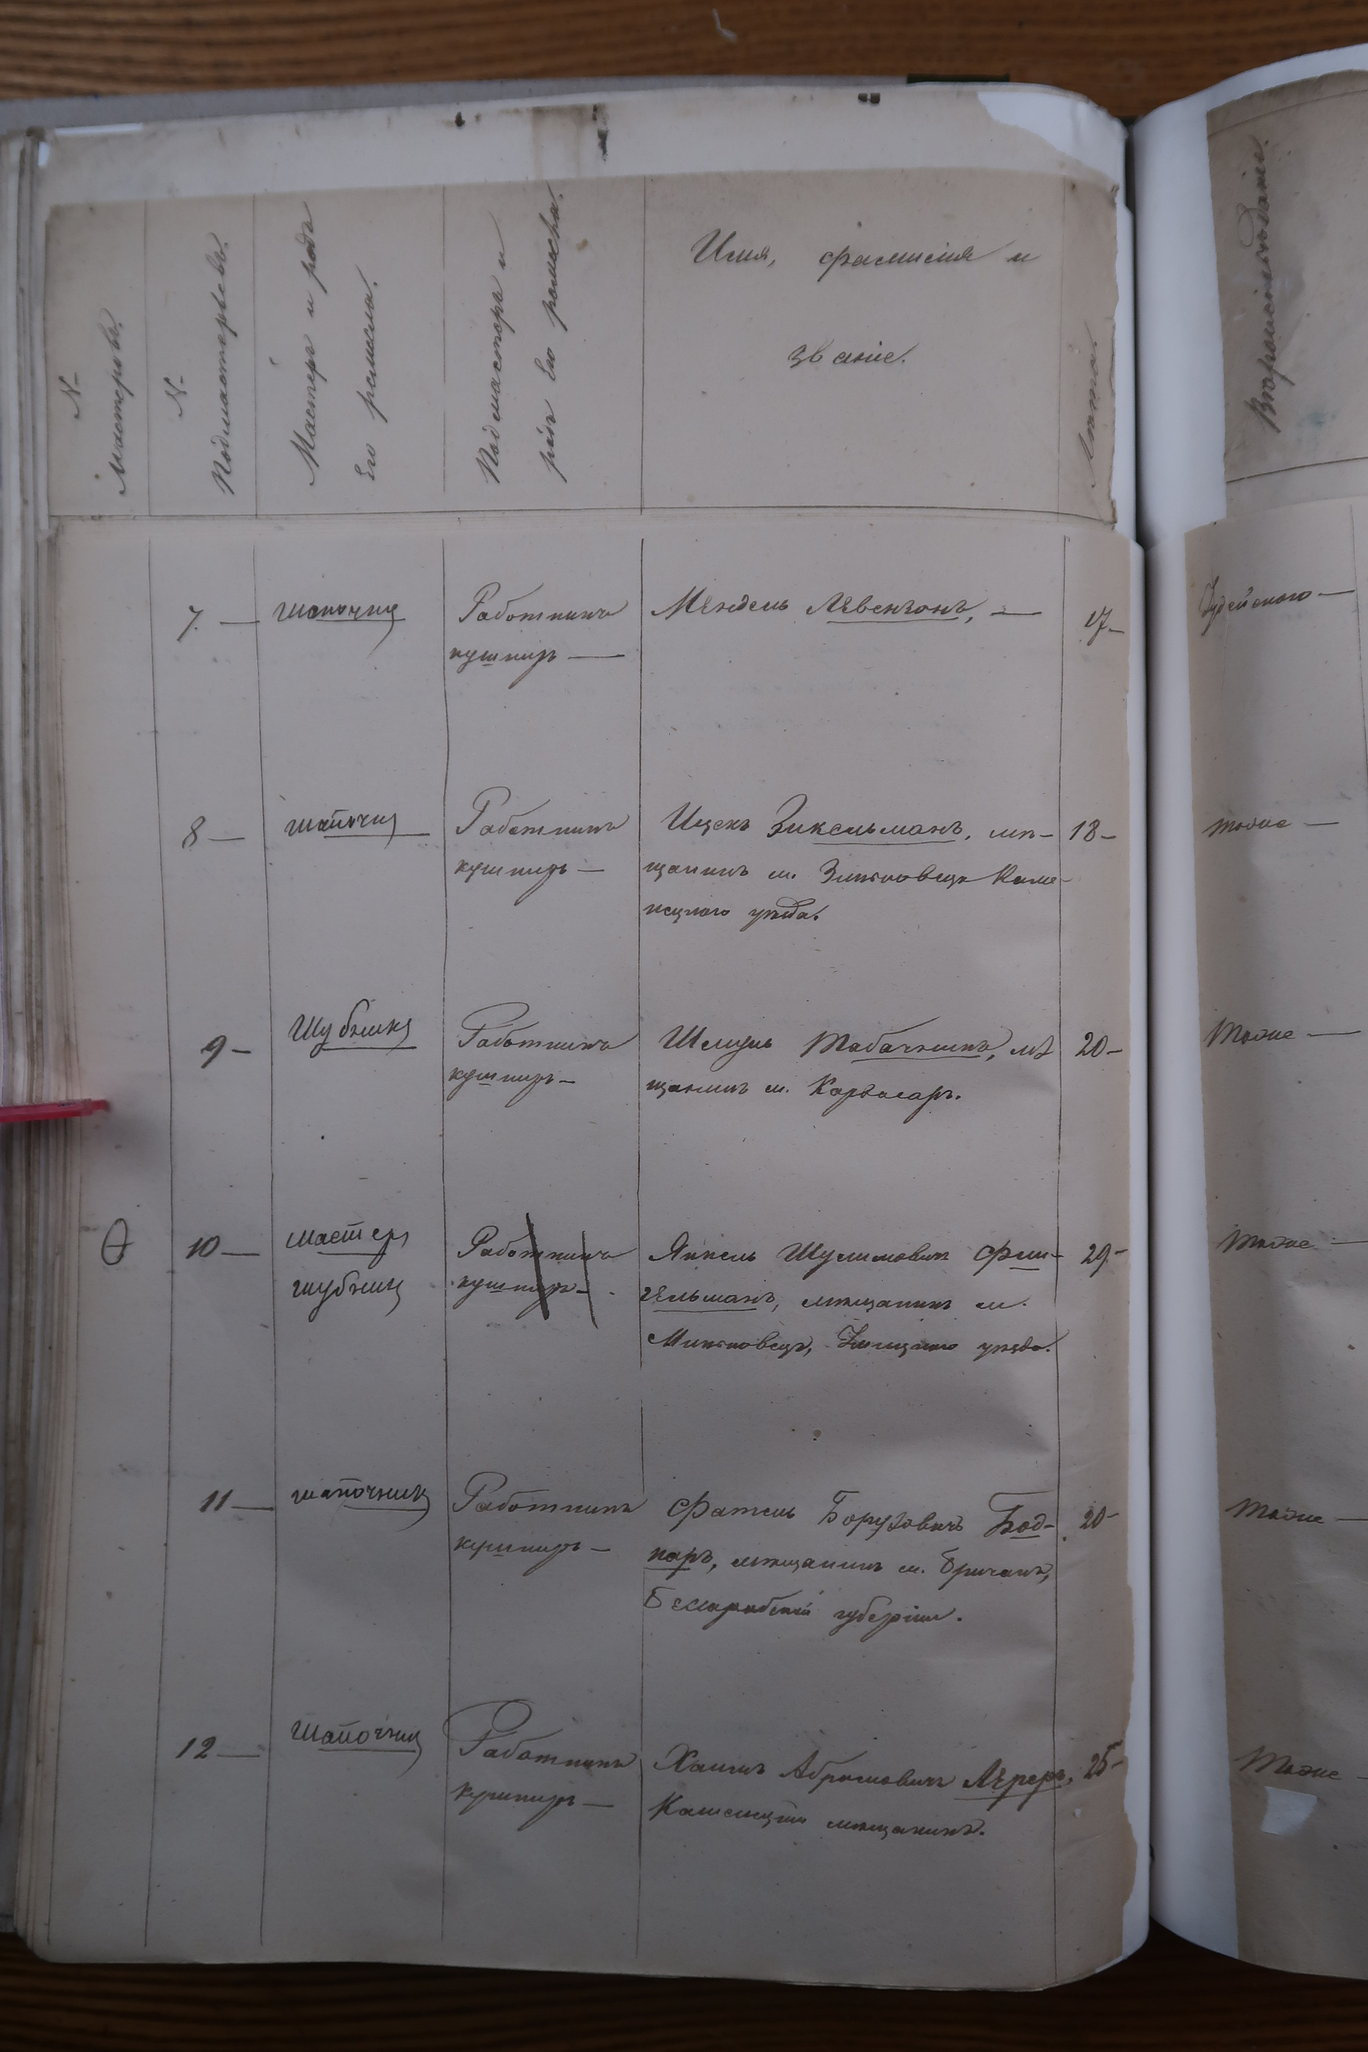 №
Мастеровъ.
№
Подмастерьевъ.
Мастеръ и родъ
Его ремесла.
Подмастеръ и
родъ Его ремесла.
Имя, фамилія и
званіе.
Лѣта.
Вѣроисповѣданіе.
7. — шапочник
Работникъ
кушниръ —
Мендель Левензонъ, —
17 —
Іудейского —
8 — шапочник
Работникъ
кушниръ —
Ицекъ Зикельманъ, мѣ-
щанинъ м. Зиньковецъ Каме-
нецкаго уѣзда.
18 —
тоже —
9 — Шубник
Работникъ
кушниръ —
Шмуль Табачникъ, мѣ
щанинъ м. Карвасаръ.
20 —
тоже —
10 — мастер
шубник
Работникъ
кушниръ —
Янкель Шулимовичъ Фин-
гельманъ, мѣщанинъ м.
Миньковецъ, Ушицкаго уѣзда.
29 —
тоже —
11 — шапочник
Работникъ
кушниръ —
Фатель Борухович Бод-
наръ, мѣщанинъ м. Бричанъ,
Бессарабской губерніи.
20 —
тоже —
12 — шапочник
Работникъ
кушниръ —
Хаимъ Абрамовичъ Лереръ,
Каменецкій мѣщанинъ.
25 —
тоже —